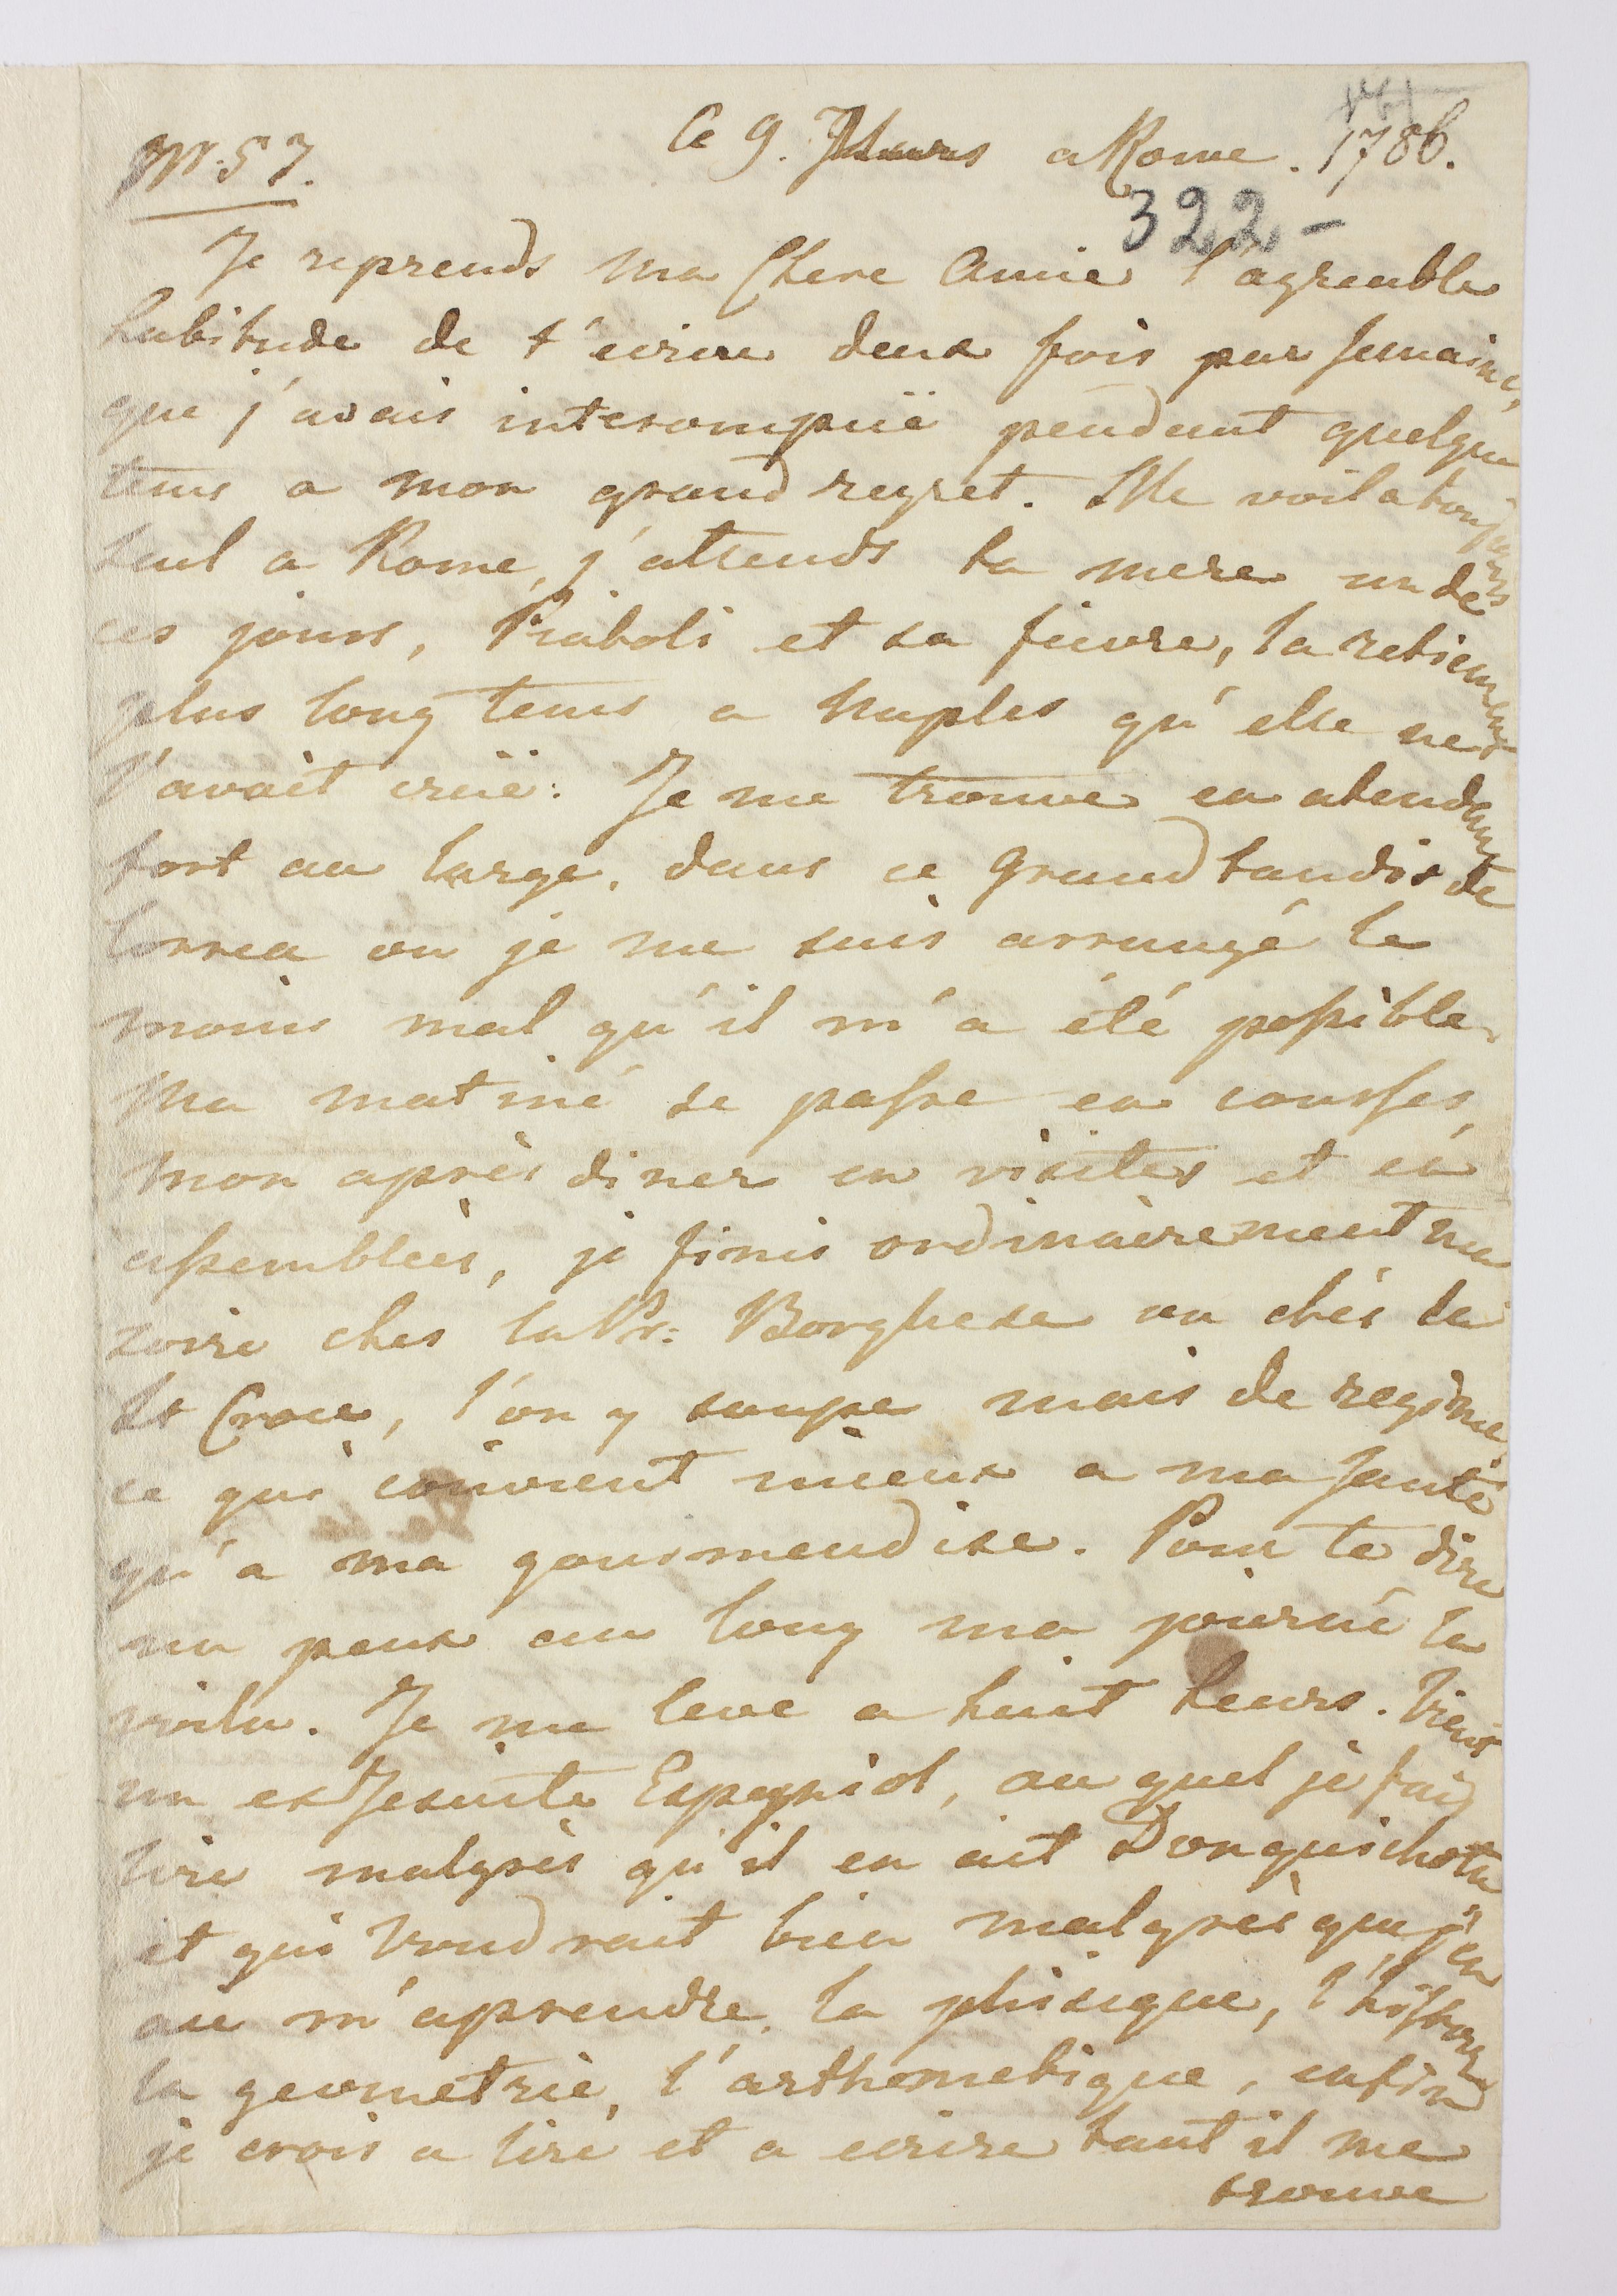 N: 57.
Ce 9. Mars a Rome. 1786.
322-
Je reprends ma Chere Amie l'agreable
habitude de t'écrire deux fois par semaine,
que j'avais interompuë pendant quelque
tems a mon grand regret. Me voila toujours
seul a Rome, j'attends ta mere un de
ces jours, Piaboli et sa fievre, la retiennent
plus long tems a Naples qu'elle ne
l'avait crüe. Je me trouve en atendant
fort au large, dans ce grand taudis de
Correa ou je me suis arrangé le
moins mal qu'il m'a été possible.
Ma matiné se passe en courses,
mon après diner en visites et en
assemblées, je finis ordinairement ma
soire ches la Pr: Borghese ou chés la
St Croce, l'on y soupe mais de regime,
ce qui convient mieux a ma santé
qu'a ma gourmendise. Pour te dire
un peux au long ma journé la
voila. Je me leve a huit heurs. Vient
un exJesuite Espagniol, au quel je fais
lire malgrès qu'il en ait Donquichotte
et qui voudrait bien malgrès que j'en
aie m'aprendre la phisique, l'histoire
la geometrie, l'arthemetique, enfin
je crois a lire et a ecrire tant il me
trouve